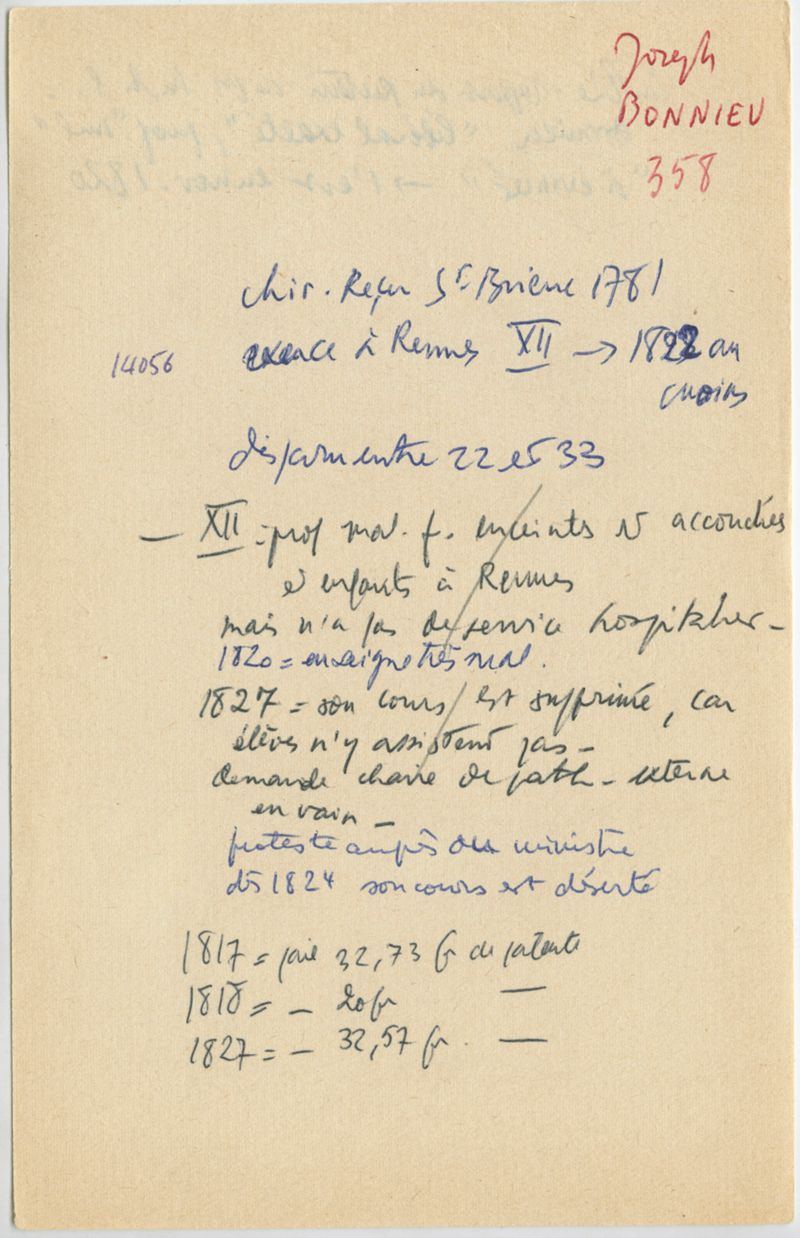 Joseph
BONNIEU
358
chir. Reçu St Brieuc 1781
14056 exerce à Rennes XII → 1822 au
moins
disparu entre 22 et 33
— XII = prof mal. f. enceintes et accouchées
et enfants à Rennes
mais n'a pas de service hospitalier -
1820 = enseigne très mal.
1827 = son cours est supprimé, car
élèves n'y assistent pas -
demande chaire de path - externe
en vain -
proteste auprès du ministre
dès 1824 son cours est déserté
1817 = paie 32,73 fr de patente
1818 = - 20 fr —
1827 = - 32,57 fr. —